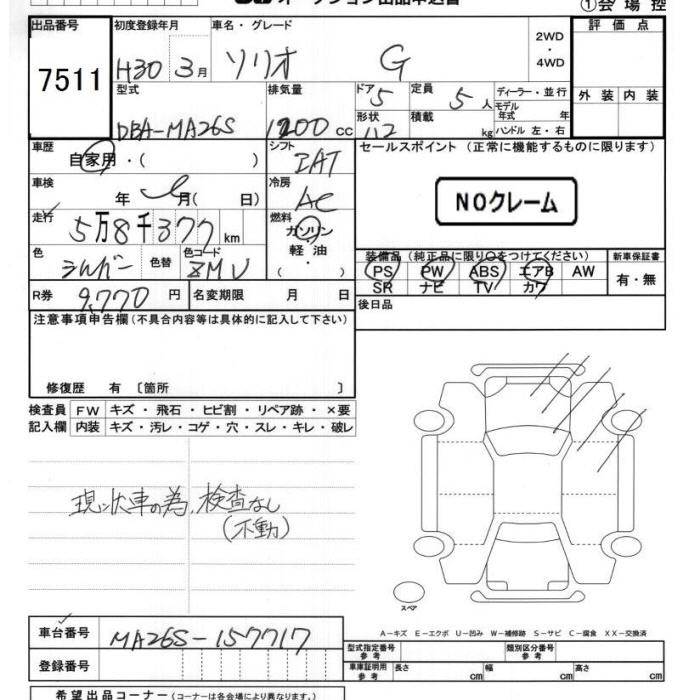 オークション出品申込書
①会場控
出品番号
7511
初度登録年月
H30 3月
車名・グレード
ソリオ G
2WD
・
4WD
評価点
外装 内装
型式
DBA-MA26S
排気量
1200 cc
ドア 5
形状
定員 5 人
積載 kg
ディーラー・並行
モデル年式 年
ハンドル 左・右
車歴
自家用・( )
シフト
IAT
セールスポイント (正常に機能するものに限ります)
NOクレーム
車検
年 月( 日)
冷房
AC
走行
5万8千377km
燃料
ガソリン
軽油
・
( )
色
シルバー
色替
色コード
ZMU
装備品 (純正品に限り○をつけてください)
PS PW ABS エアB AW
SR ナビ TV カワ
新車保証書
有・無
R券 9,770 円
名変期限 月 日
後日品
注意事項申告欄(不具合内容等は具体的に記入して下さい)
修復歴 有 〔箇所 〕
検査員 FW キズ・飛石・ヒビ割・リペア跡・×要
記入欄 内装 キズ・汚レ・コゲ・穴・スレ・キレ・破レ
現状車の為、検査なし
(不動)
スペア
A-キズ E-エクボ U-凹み W-補修跡 S-サビ C-腐食 XX-交換済
車台番号 MA26S-157717
登録番号
型式指定番号 参考
類別区分番号 参考
車庫証明用 参考
長さ cm 幅 cm 高さ cm
希望出品コーナー(コーナーは各会場により異なります。)